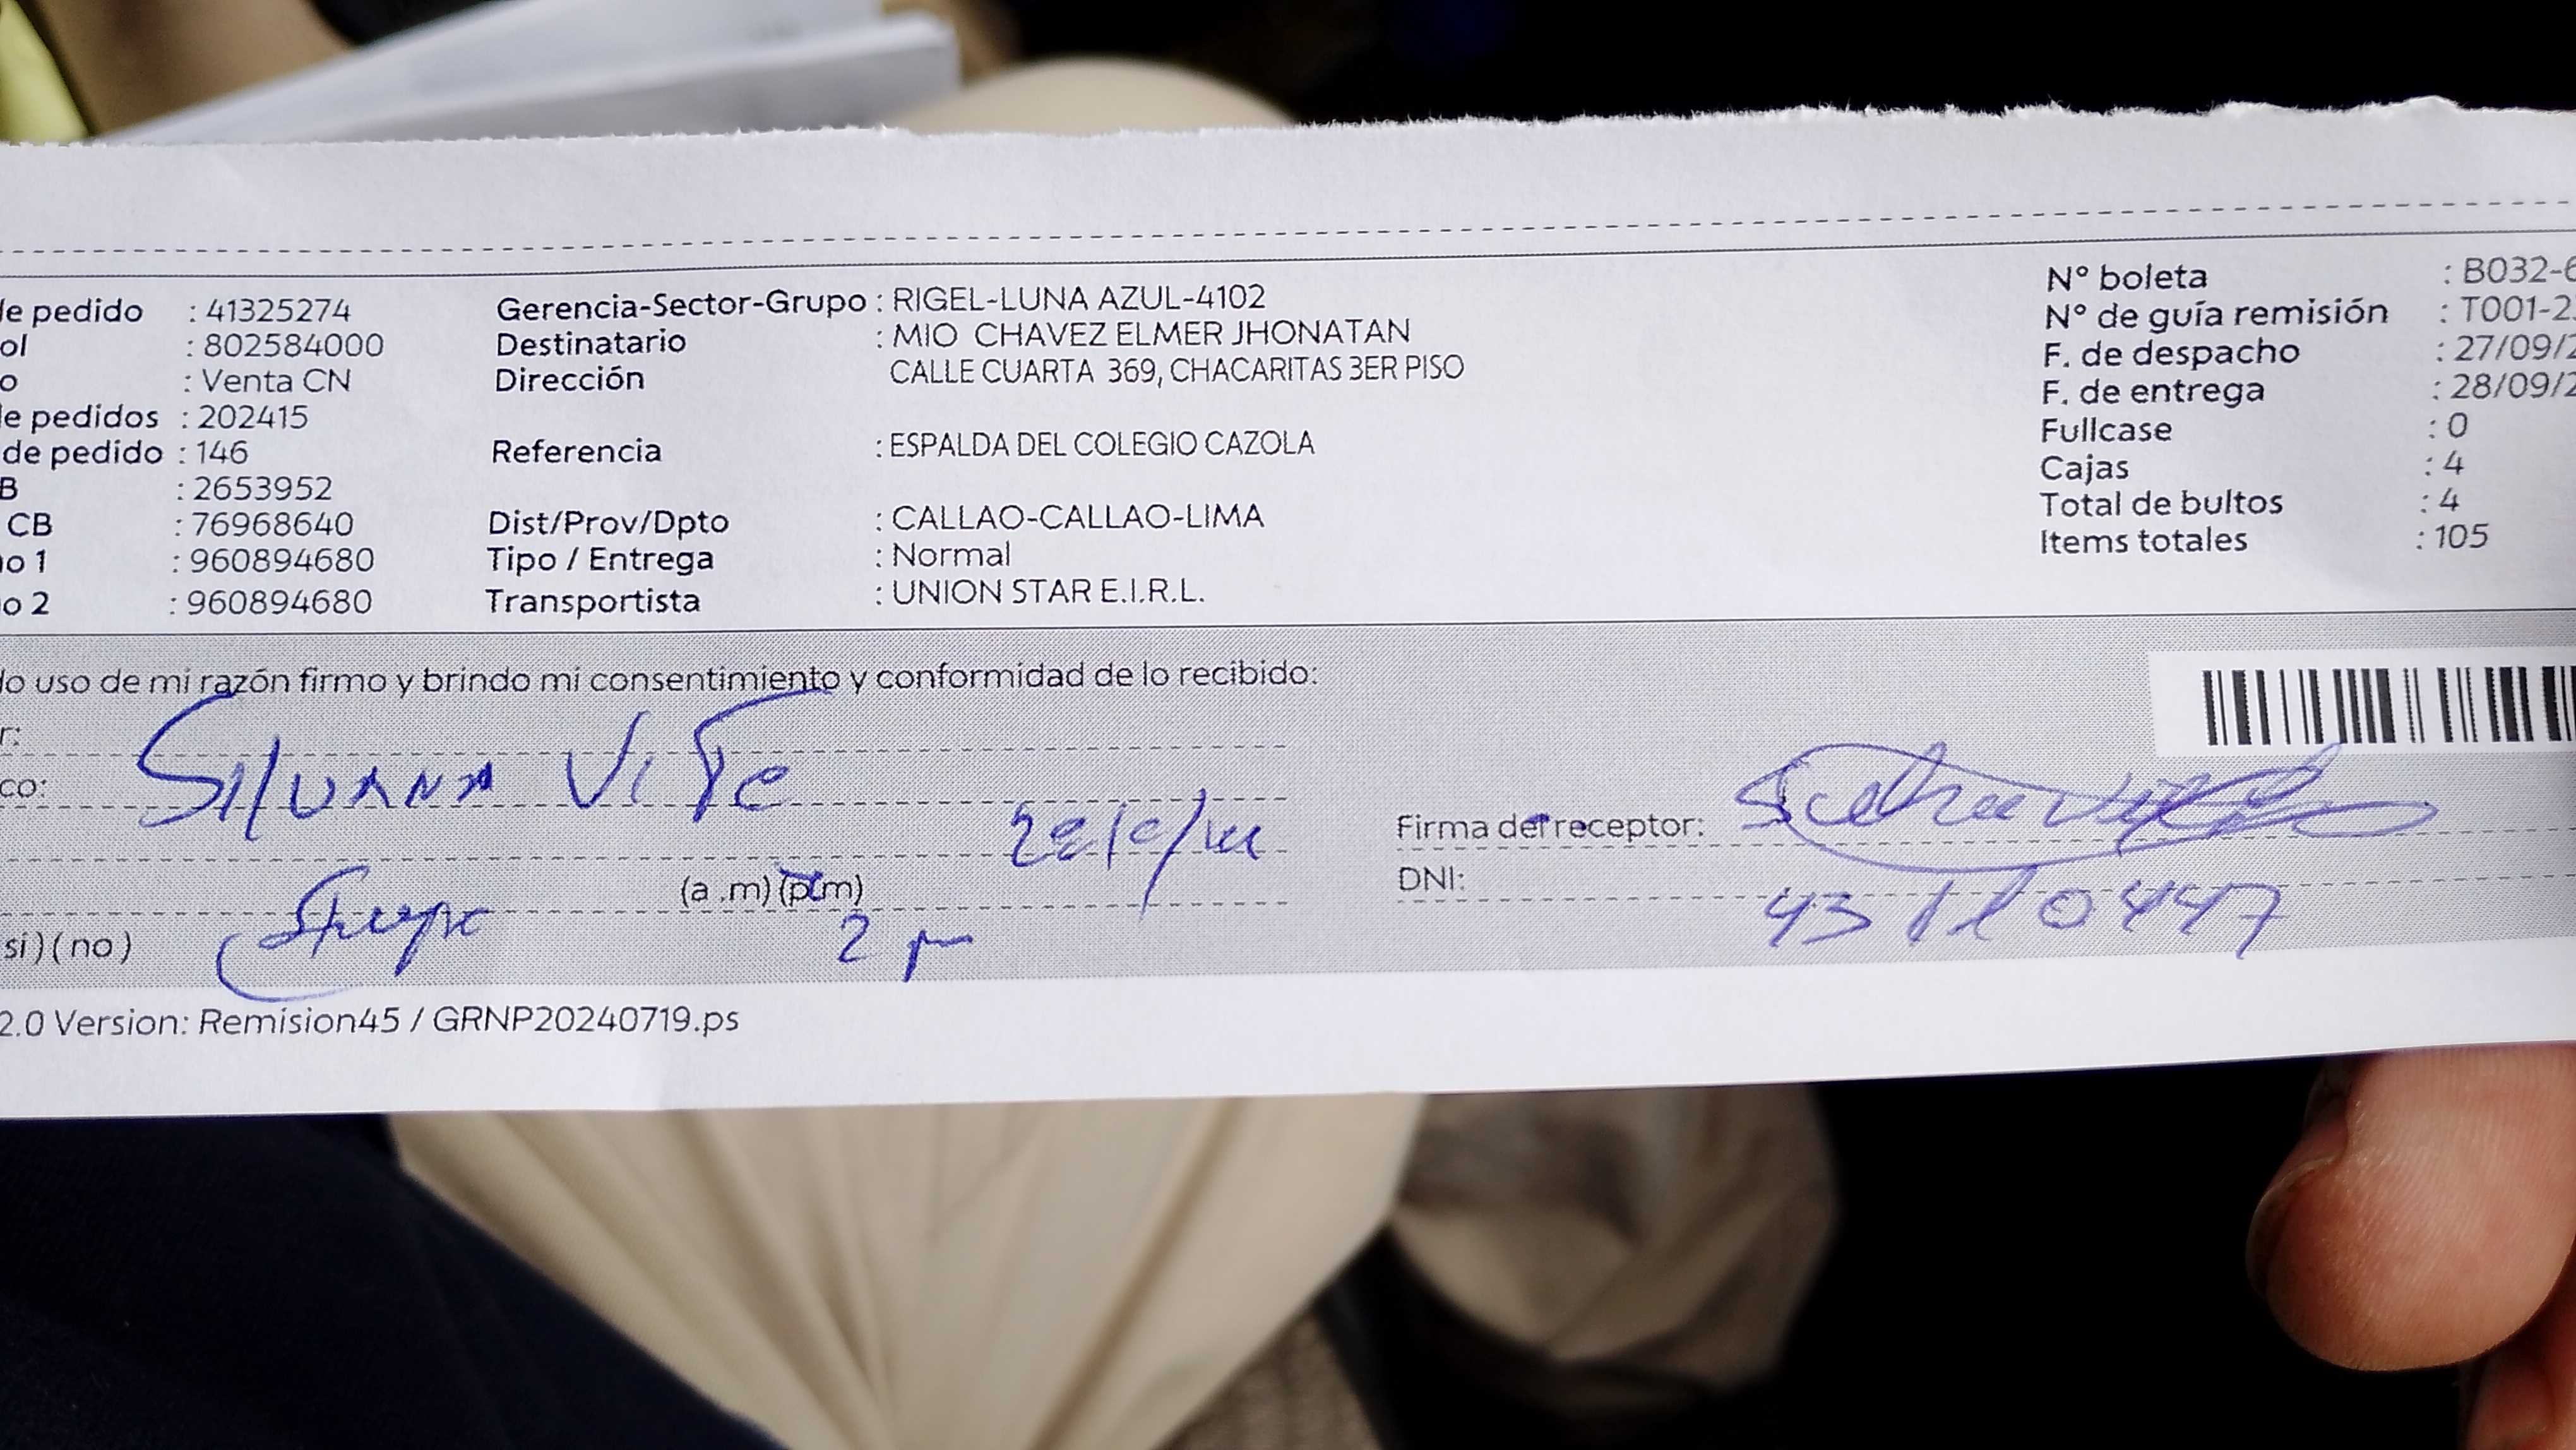 de pedido : 41325274
ol : 802584000
o : Venta CN
de pedidos : 202415
de pedido : 146
B : 2653952
CB : 76968640
no 1 : 960894680
o 2 : 960894680
Gerencia-Sector-Grupo : RIGEL-LUNA AZUL-4102
Destinatario : MIO CHAVEZ ELMER JHONATAN
Dirección CALLE CUARTA 369, CHACARITAS 3ER PISO
Referencia : ESPALDA DEL COLEGIO CAZOLA
Dist/Prov/Dpto : CALLAO-CALLAO-LIMA
Tipo / Entrega : Normal
Transportista : UNION STAR E.I.R.L.
N° boleta : B032-6
N° de guía remisión : T001-2
F. de despacho : 27/09/2
F. de entrega : 28/09/2
Fullcase : 0
Cajas : 4
Total de bultos : 4
Items totales : 105
do uso de mi razón firmo y brindo mi consentimiento y conformidad de lo recibido:
r:
co: SILVANA VITE
(a .m) (p.m)
2 pm
si ) ( no )
Firma del receptor:
DNI:
2.0 Version: Remision45 / GRNP20240719.ps